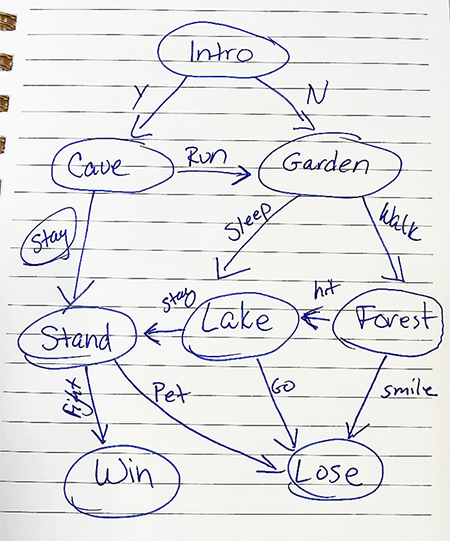 Intro
Y N
Cave Run Garden
Stay Sleep Walk
Stand stay Lake hit Forest
fight Pet GO smile
Win Lose